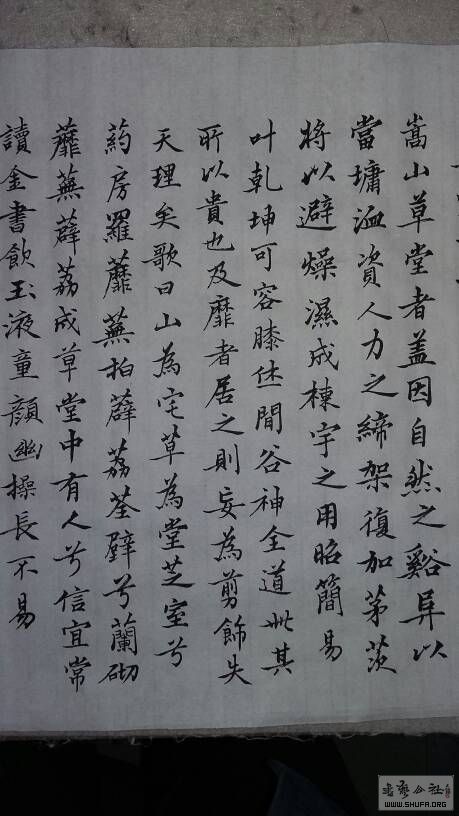 嵩山草堂者盖因自然之谿阜以
當墉洫資人力之締架復加茅茨
将以避燥濕成棟宇之用昭簡易
叶乾坤可容膝休閒谷神全道此其
所以貴也及靡者居之則妄為剪飾失
天理矣歌曰山為宅草為堂芝室兮
葯房羅蘼蕪拍薜荔荃壁兮蘭砌
蘼蕪薜荔成草堂中有人兮信宜常
讀金書飲玉液童顏幽操長不易
WWW.SHUFA.ORG